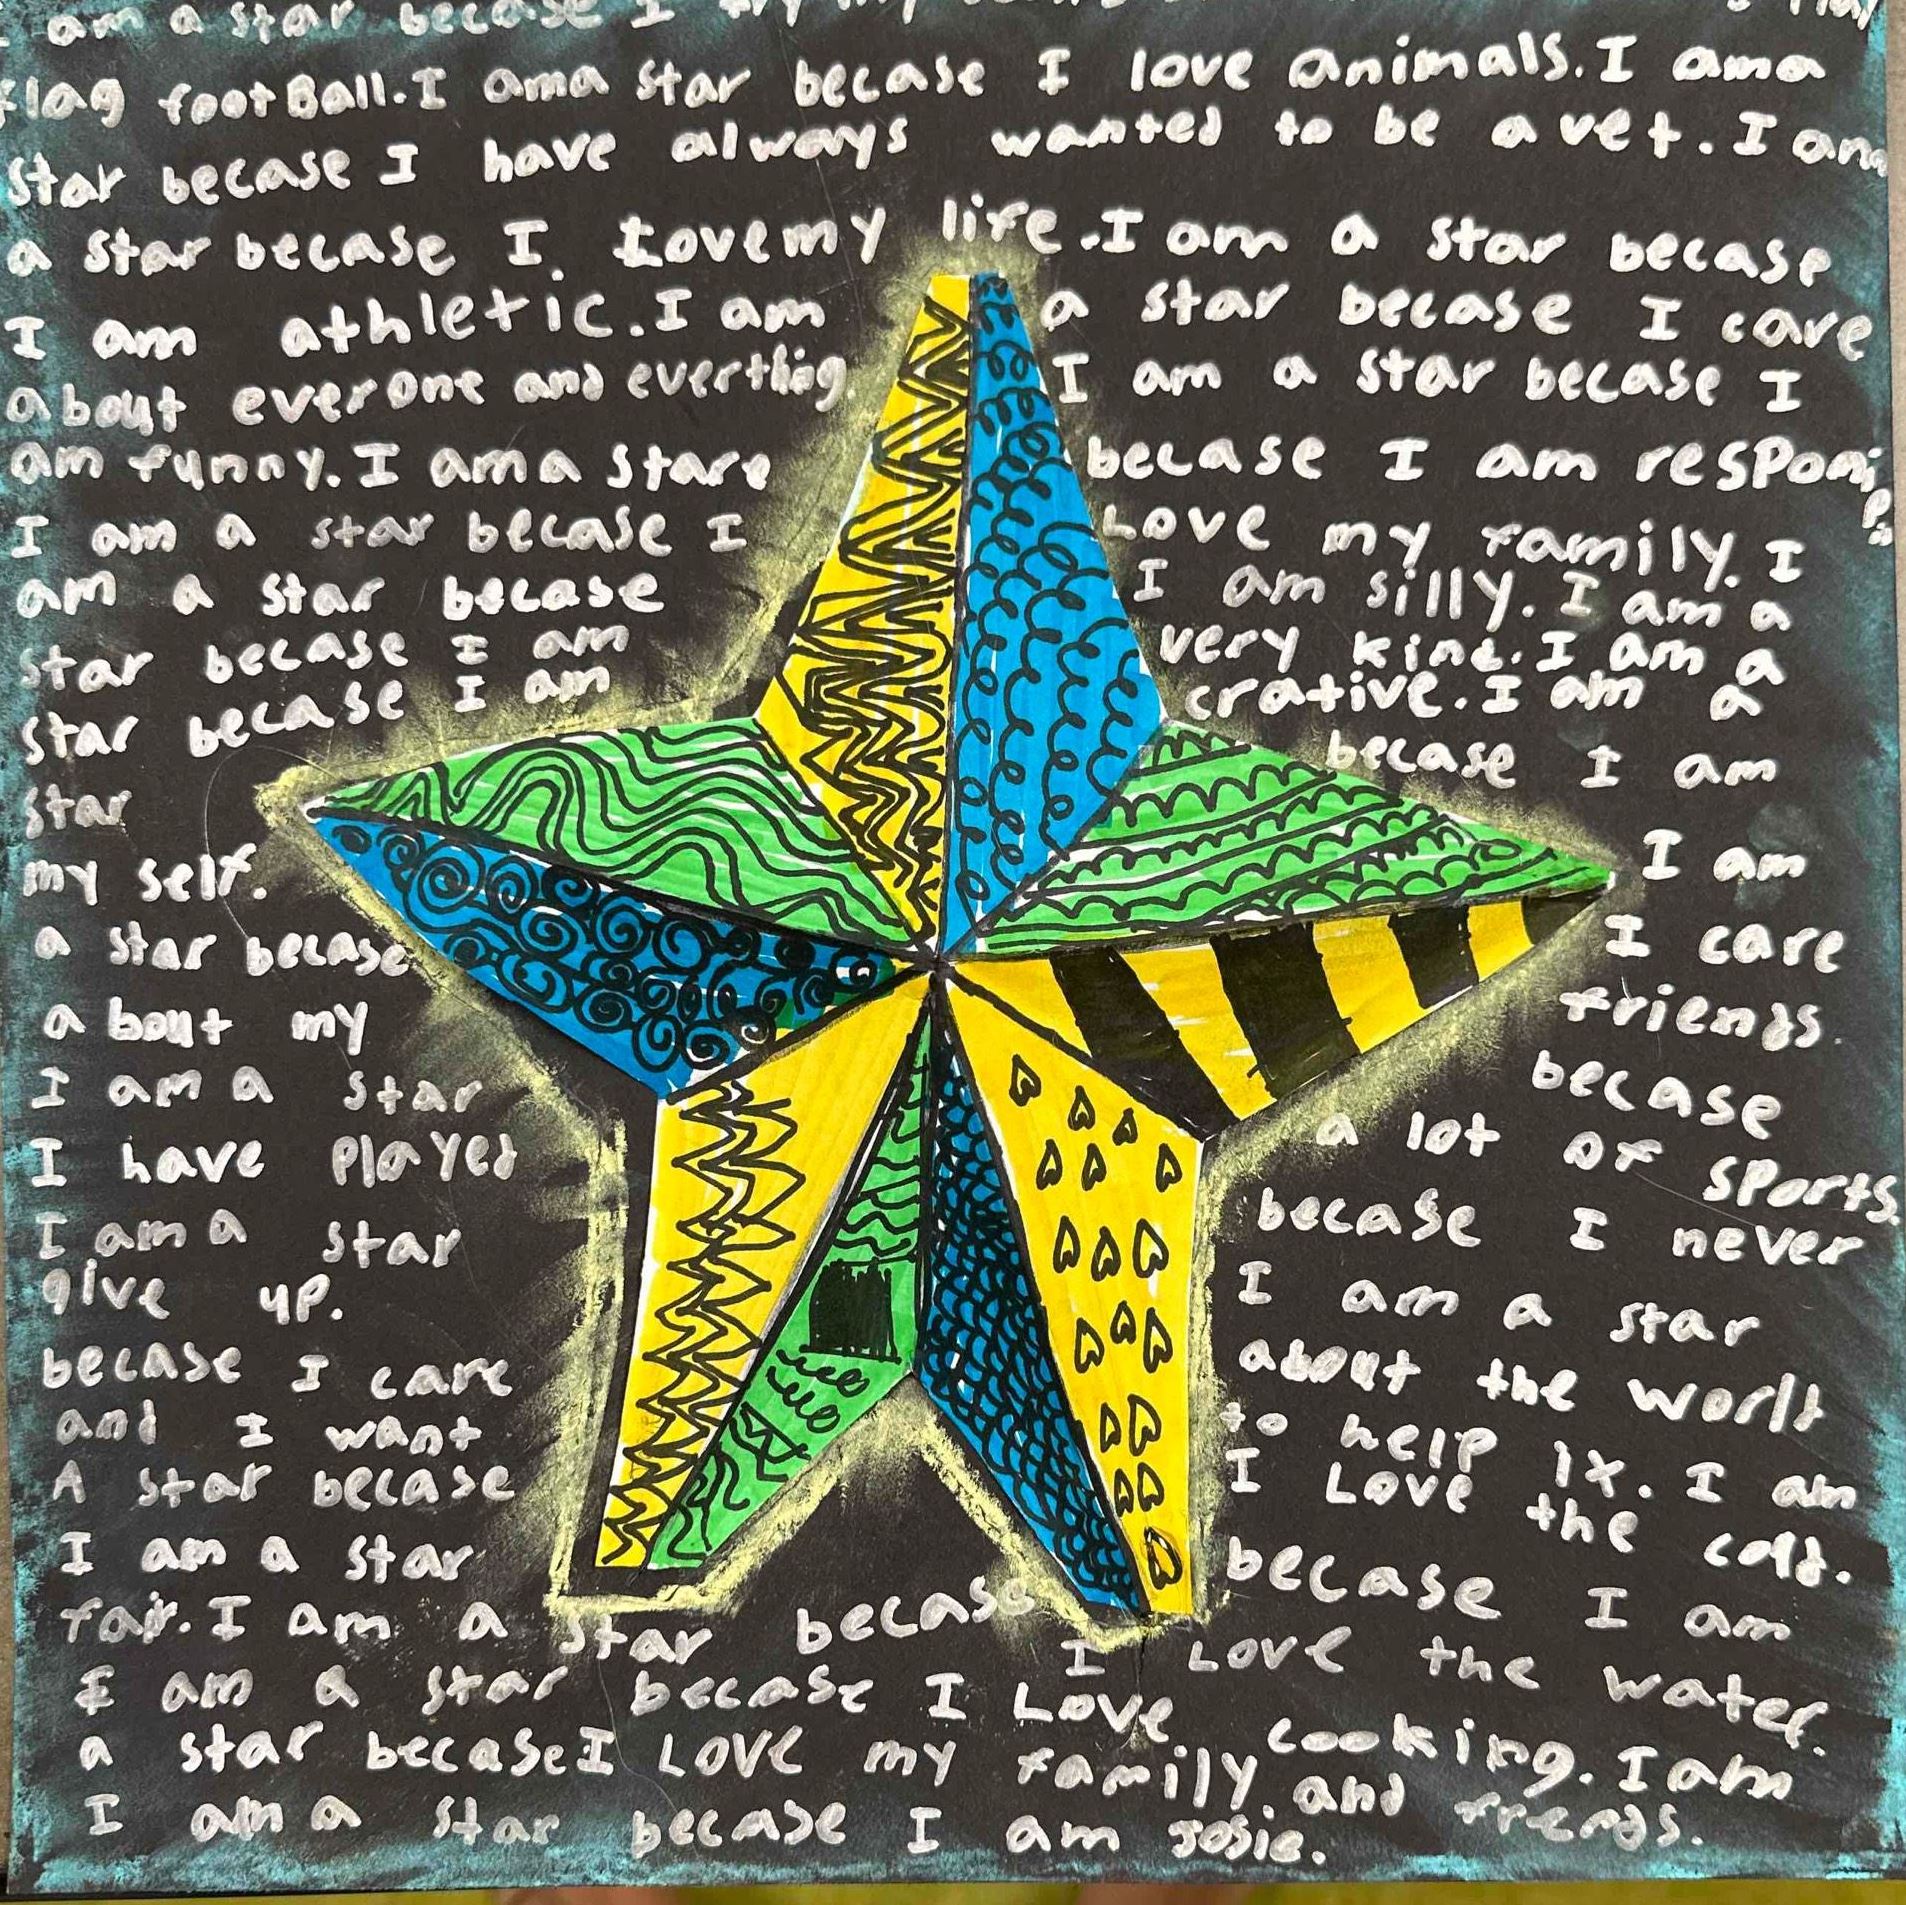 I am a star becase I try my
flag football. I am a star becase I love animals. I am a
star becase I have always wanted to be a vet. I am
a star becase I Love my life. I am a star becase
I am athletic. I am a star becase I care
about everone and everthing I am a star becase I
am funny. I am a stare becase I am responsi
I am a star becase I Love my family. I
am a star becase I am silly. I am a
star becase I am very kind. I am a
star becase I am crative. I am a
star becase I am
my self. I am
a star becase I care
about my friends.
I am a star becase
I have played a lot of sports.
I am a star becase I never
give up. I am a star
becase I care about the world
and I want to help ix. I am
A star becase I Love the cold.
I am a star becase I am
fair. I am a star becase I Love the water.
I am a star becase I Love cooking. I am
a star becase I Love my family and friends.
I am a star becase I am Josie.